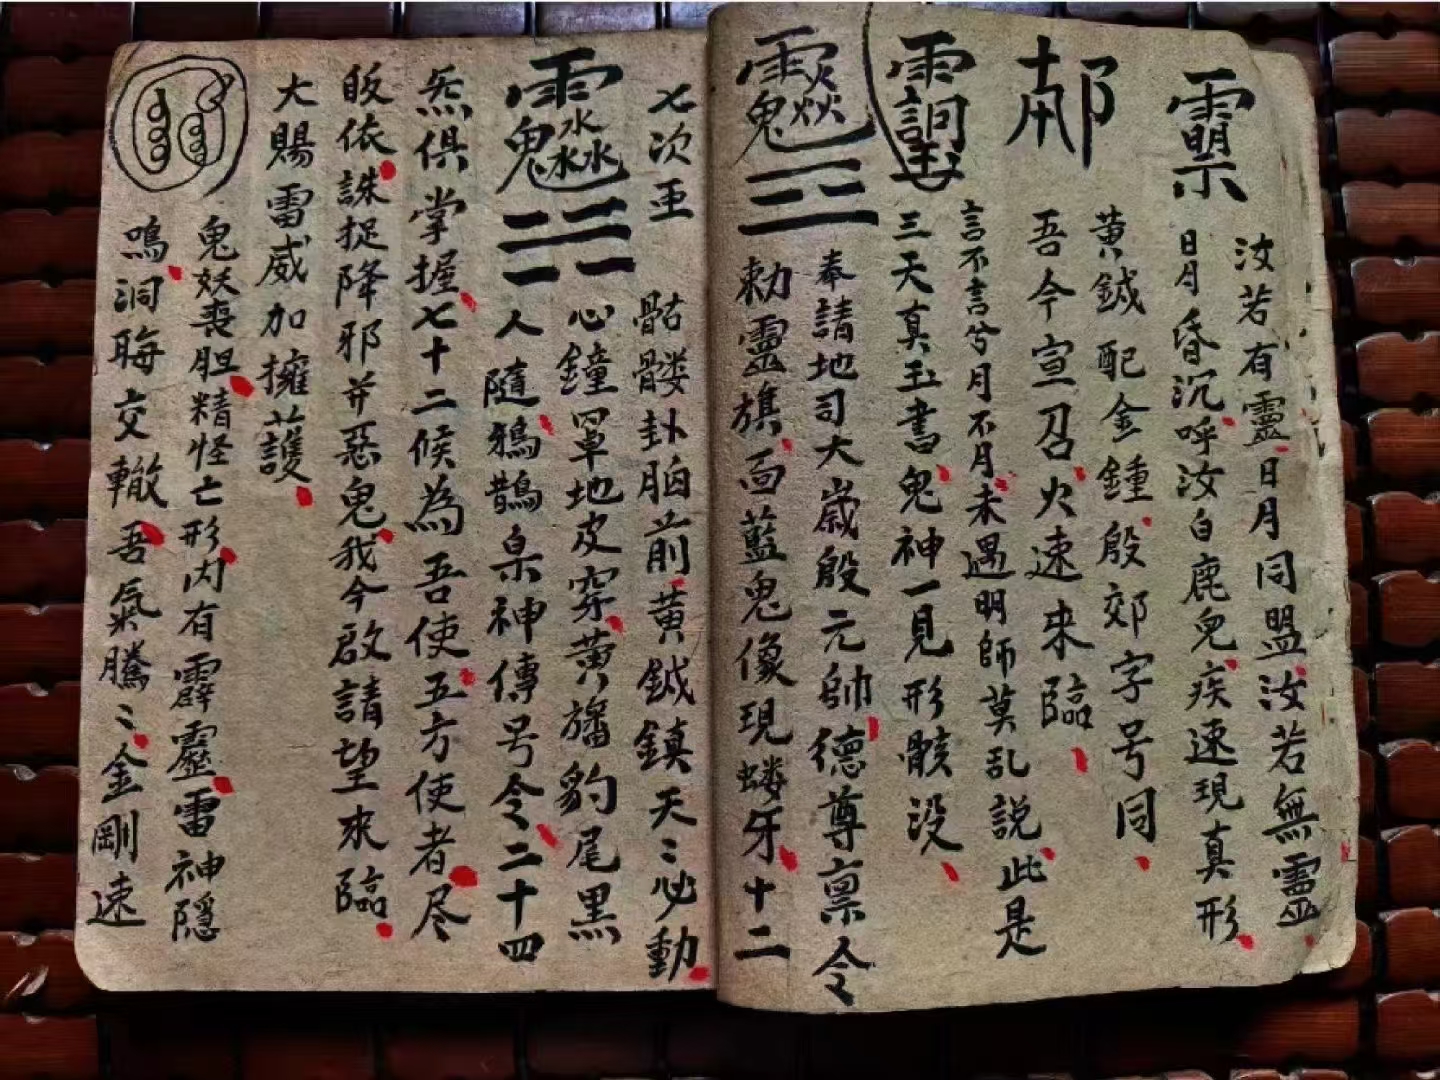 汝若有靈日月同盟汝若無靈
日月昏沉呼汝白鹿兒疾速現真形
黄鉞配金鍾殷郊字号同
吾今宣召火速来臨
言不言兮月不月未遇明師莫乱説此是
三天真玉書鬼神一見形骸没
奉請地司大歲殷元帥德尊禀令
勅靈旗面藍鬼像現螻牙十二
七次亜
骷髅卦胎前黄鉞鎮天〻必動
心鐘罩地皮穿黄旛豹尾黑
人隨鴉鵲梟神傳号令二十四
炁俱掌握七十二候為吾使五方使者尽
皈依誅捉降邪并惡鬼我今啟請望來臨
大賜雷威加擁護
鬼妖喪胆精怪亡形内有霹靂雷神隱
鳴洞晦交轍吾氣騰〻金剛速